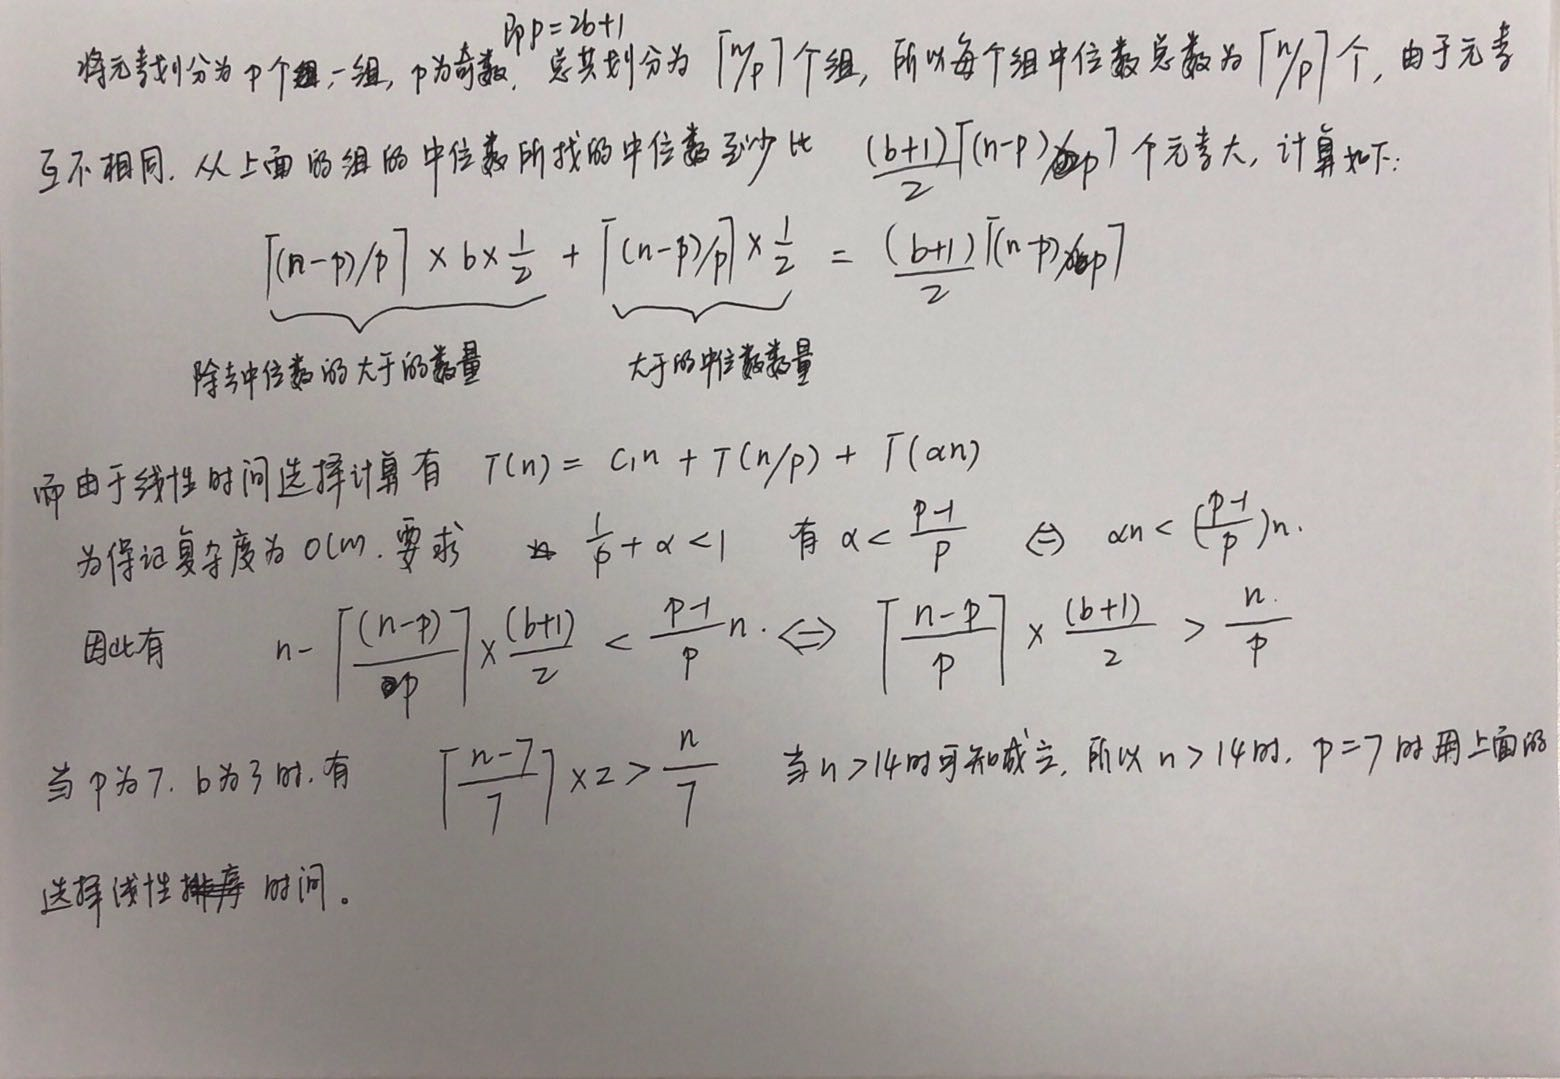 即p=2b+1
将元素划分为p个一组, p为奇数, 总共划分为 ⌈n/p⌉ 个组, 所以每个组中位数总数为 ⌈n/p⌉ 个, 由于元素
互不相同. 从上面的组的中位数所找的中位数至少比 (b+1)/2 ⌈(n-p)/p⌉ 个元素大, 计算如下:
⌈(n-p)/p⌉ × b × 1/2 + ⌈(n-p)/p⌉ × 1/2 = (b+1)/2 ⌈(n-p)/p⌉
除去中位数的大于的数量 大于的中位数数量
而由于线性时间选择计算有 T(n) = C₁n + T(n/p) + T(αn)
为保证复杂度为 O(n). 要求 1/p + α < 1 有 α < (p-1)/p ⇔ αn < ((p-1)/p)n.
因此有 n - ⌈(n-p)/p⌉ × (b+1)/2 < (p-1)/p n. ⇔ ⌈(n-p)/p⌉ × (b+1)/2 > n/p
当p为7. b为3时. 有 ⌈(n-7)/7⌉ × 2 > n/7 当n>14时可知成立, 所以 n>14时. p=7时用上面的
选择线性时间。